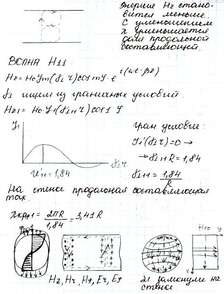 энергии Hz стано-
вится меньше.
С уменьшением
χ уменьшается
доля продольной
составляющей.
ВОЛНА H11
Hz = H0 Jm(δz r) cos mφ · e^i(ωt-βz)
δz ищем из граничных условий
Hz1 = H0 J1(δz r) cos 1 φ
J1
δz r
U11 = 1,84
Гран условие:
J1'(δz r) = 0 →
→ δz R = 1,84
δz11 = 1,84/R
На стенке продольная составляющая
max.
λкр11 = 2πR/1,84 = 3,41R
H10
Hz, Hr, Hφ, Er, Eφ
замкнули на
стенке